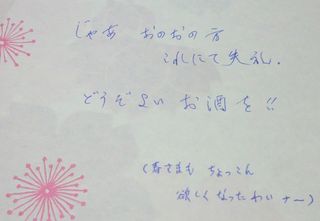 じゃあ おのおの方
これにて失礼.
どうぞよい お酒を!!
(春さまも ちょっこん
欲しくなったわいナー)